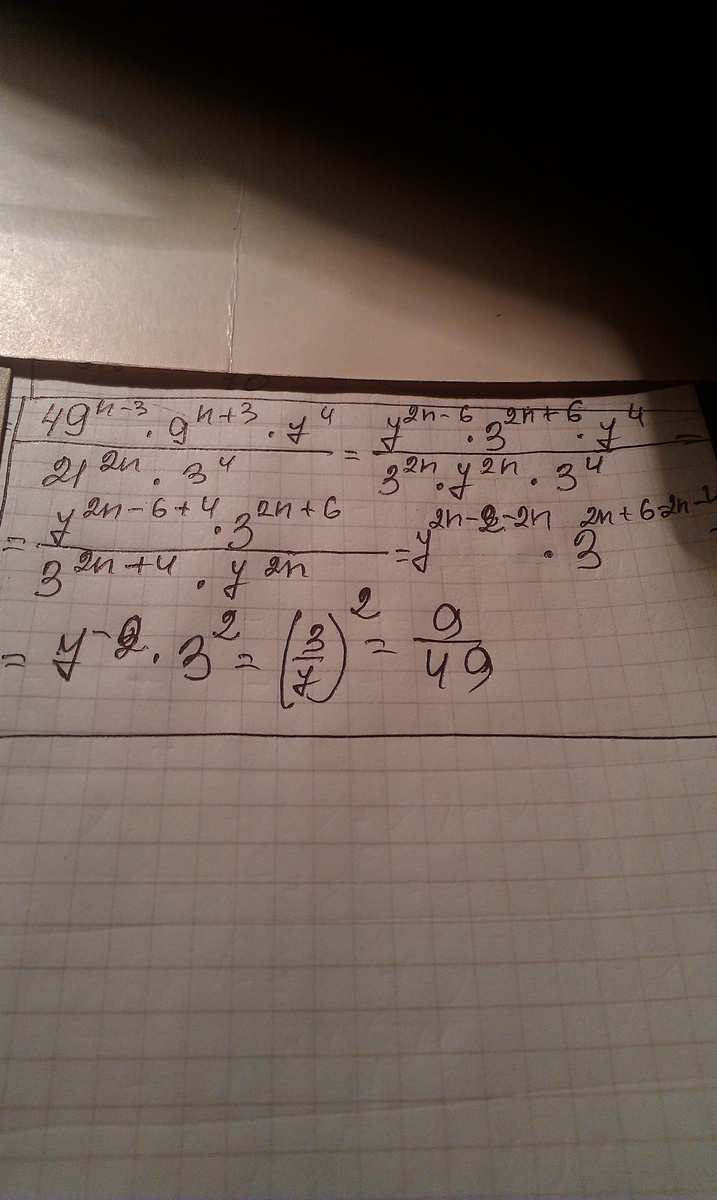 (49^(n-3) · 9^(n+3) · 7^4) / (21^(2n) · 3^4) = (7^(2n-6) · 3^(2n+6) · 7^4) / (3^(2n) · 7^(2n) · 3^4) =
= (7^(2n-6+4) · 3^(2n+6)) / (3^(2n+4) · 7^(2n)) = 7^(2n-2-2n) · 3^(2n+6-2n-4)
= 7^(-2) · 3^2 = (3/7)^2 = 9/49